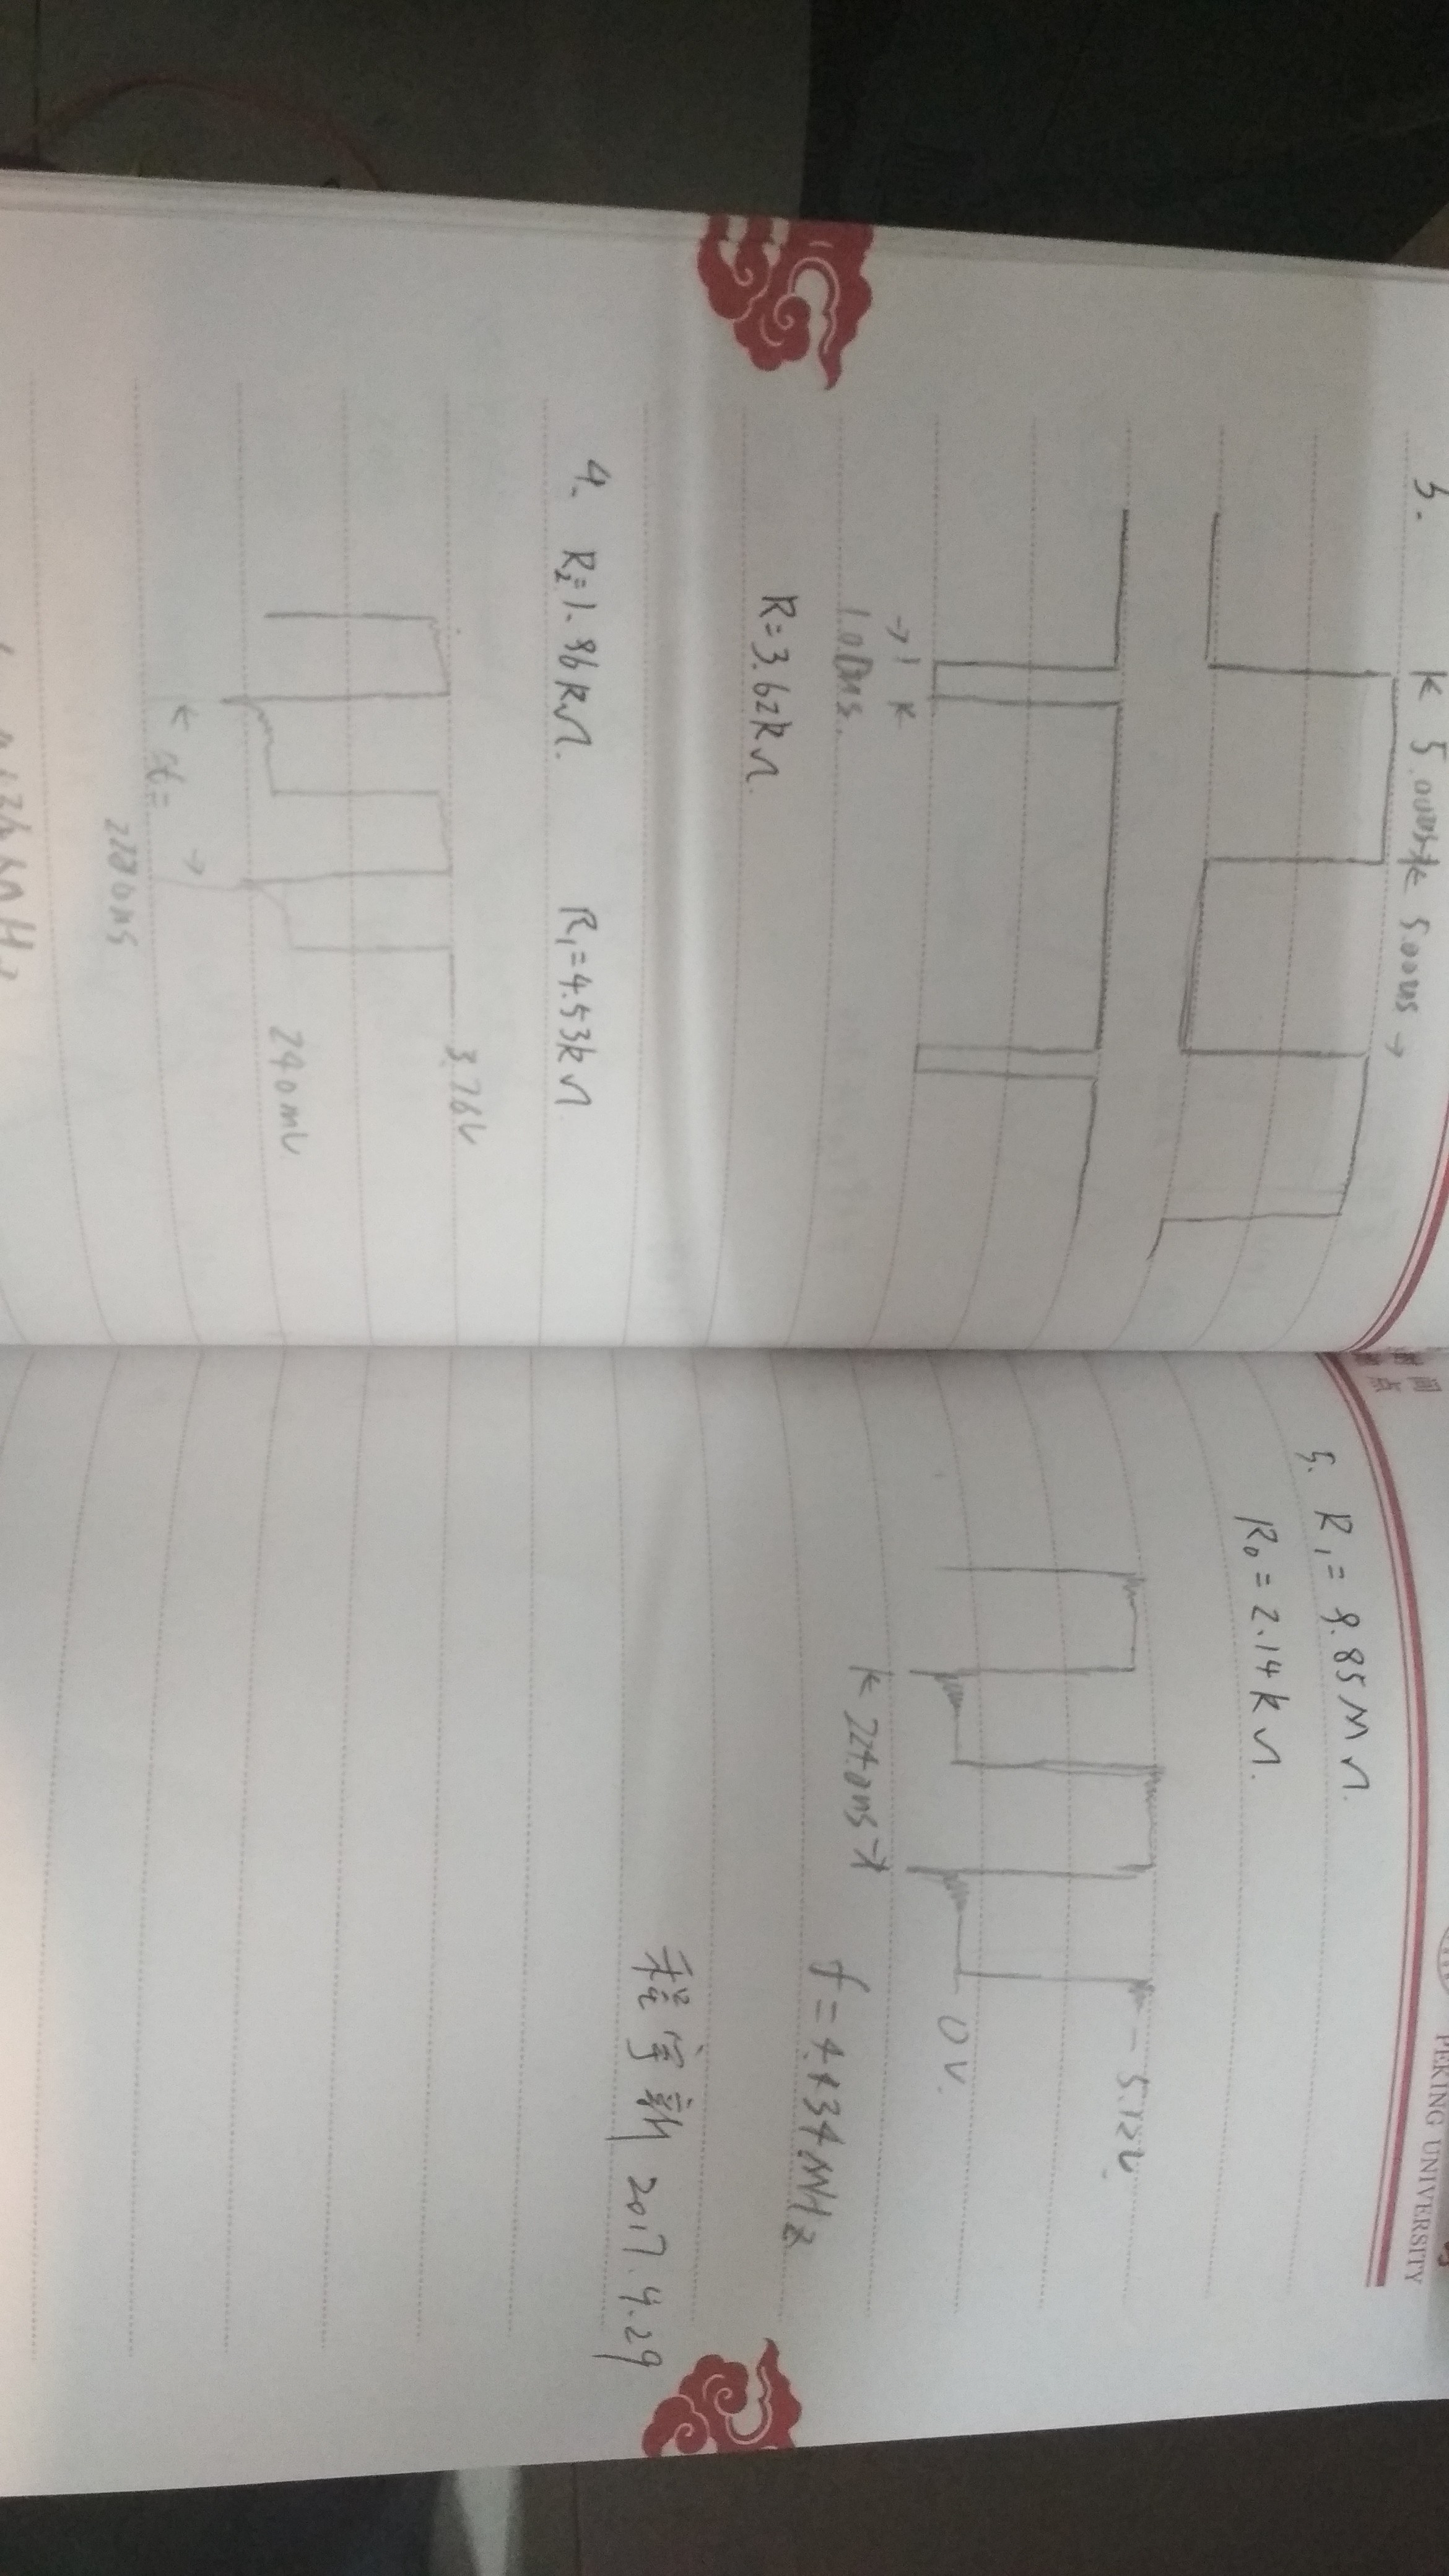 3.
5.00us 5.00us
100ns.
R=3.62kΩ.
4. R₂=1.86kΩ. R₁=4.53kΩ
3.76V
240mV
Δt=
PEKING UNIVERSITY
5. R₁=9.85MΩ.
R₀=2.14kΩ.
5.12V
0V.
224.0ns
f=4.434MHz
程宇新 2017.4.29